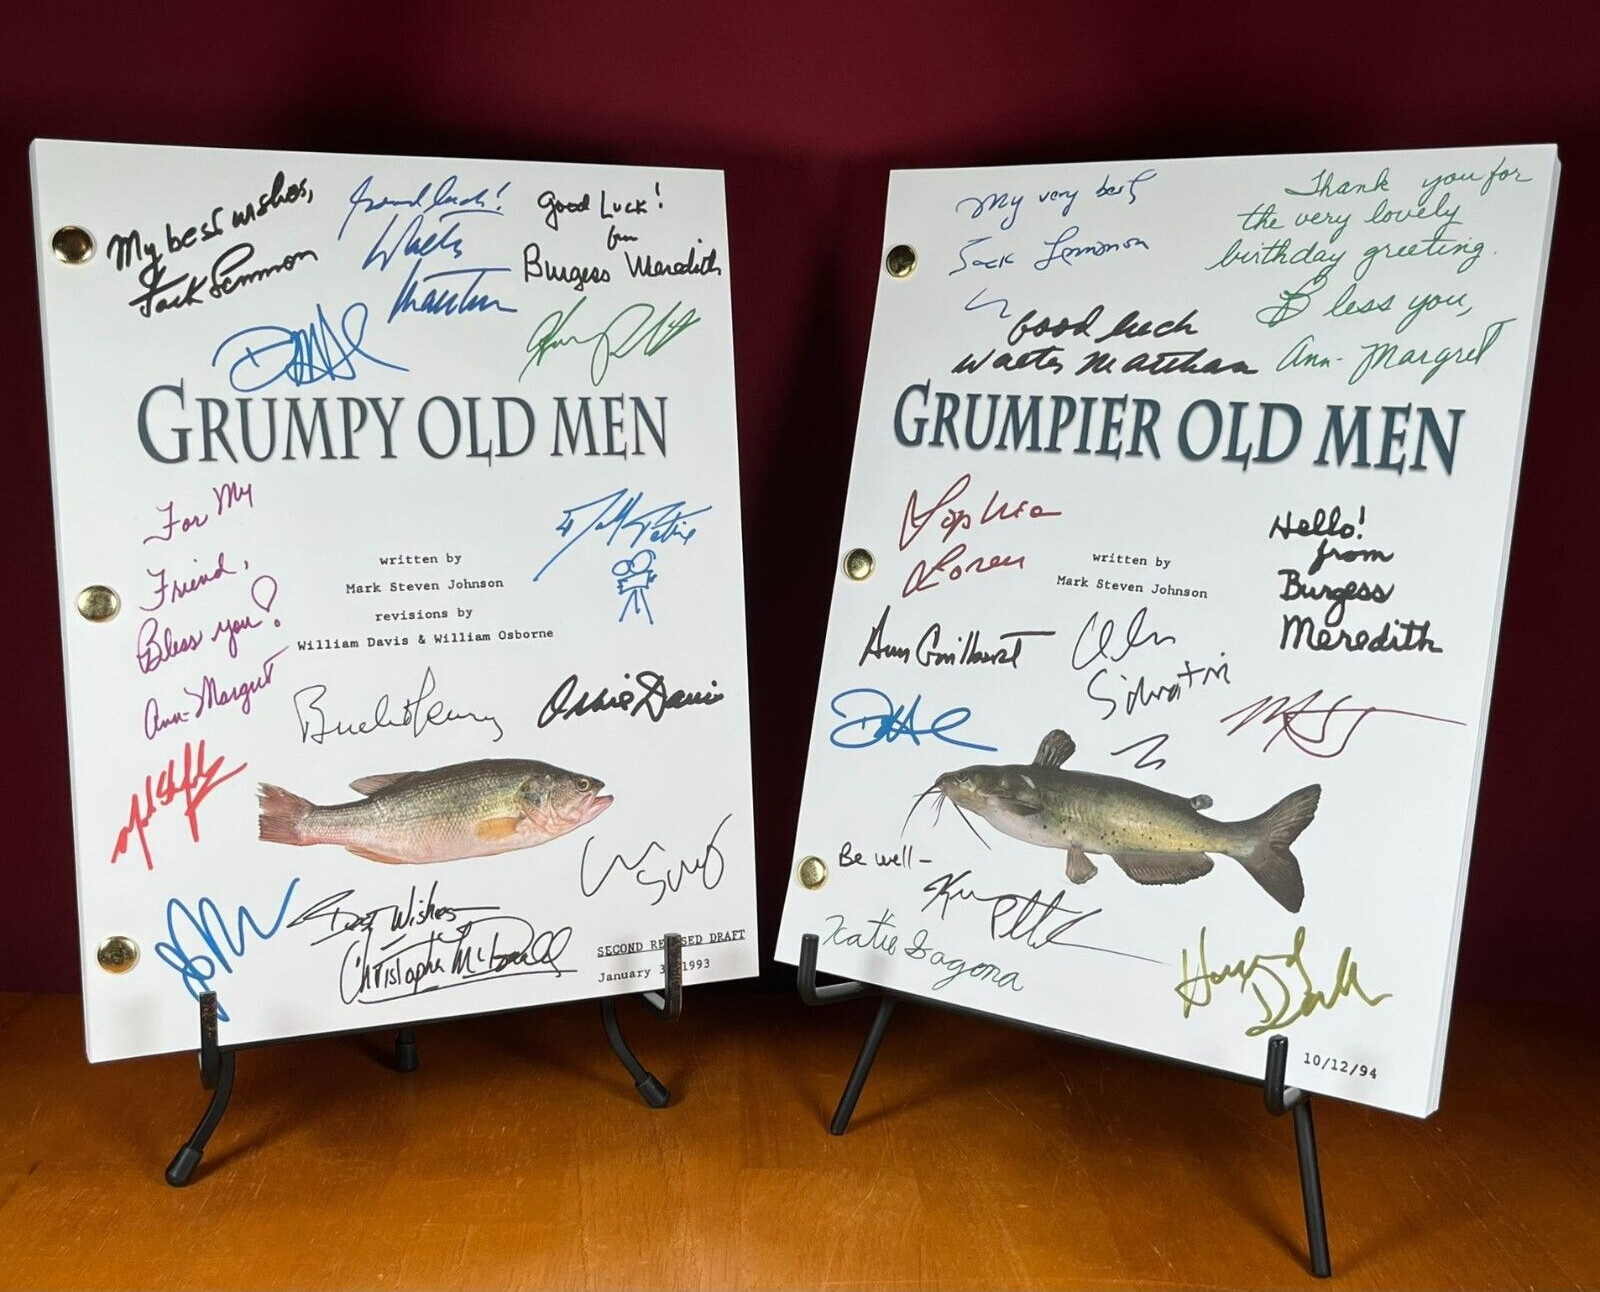 My best wishes,
Jack Lemmon
Good luck!
Walter
Matthau
Good Luck!
from
Burgess Meredith
GRUMPY OLD MEN
For My
Friend,
Bless you!
Ann-Margret
written by
Mark Steven Johnson
revisions by
William Davis & William Osborne
Buck Henry
Ossie Davis
Best Wishes
Christopher McDonald
SECOND REVISED DRAFT
January 3 1993
My very best
Jack Lemmon
Thank you for
the very lovely
birthday greeting.
Bless you,
Ann-Margret
Good luck
Walter Matthau
GRUMPIER OLD MEN
Sophia
Loren
written by
Mark Steven Johnson
Hello!
from
Burgess
Meredith
Ann Guilbert
Silvestri
Be well-
Katie Sagona
Howard
10/12/94